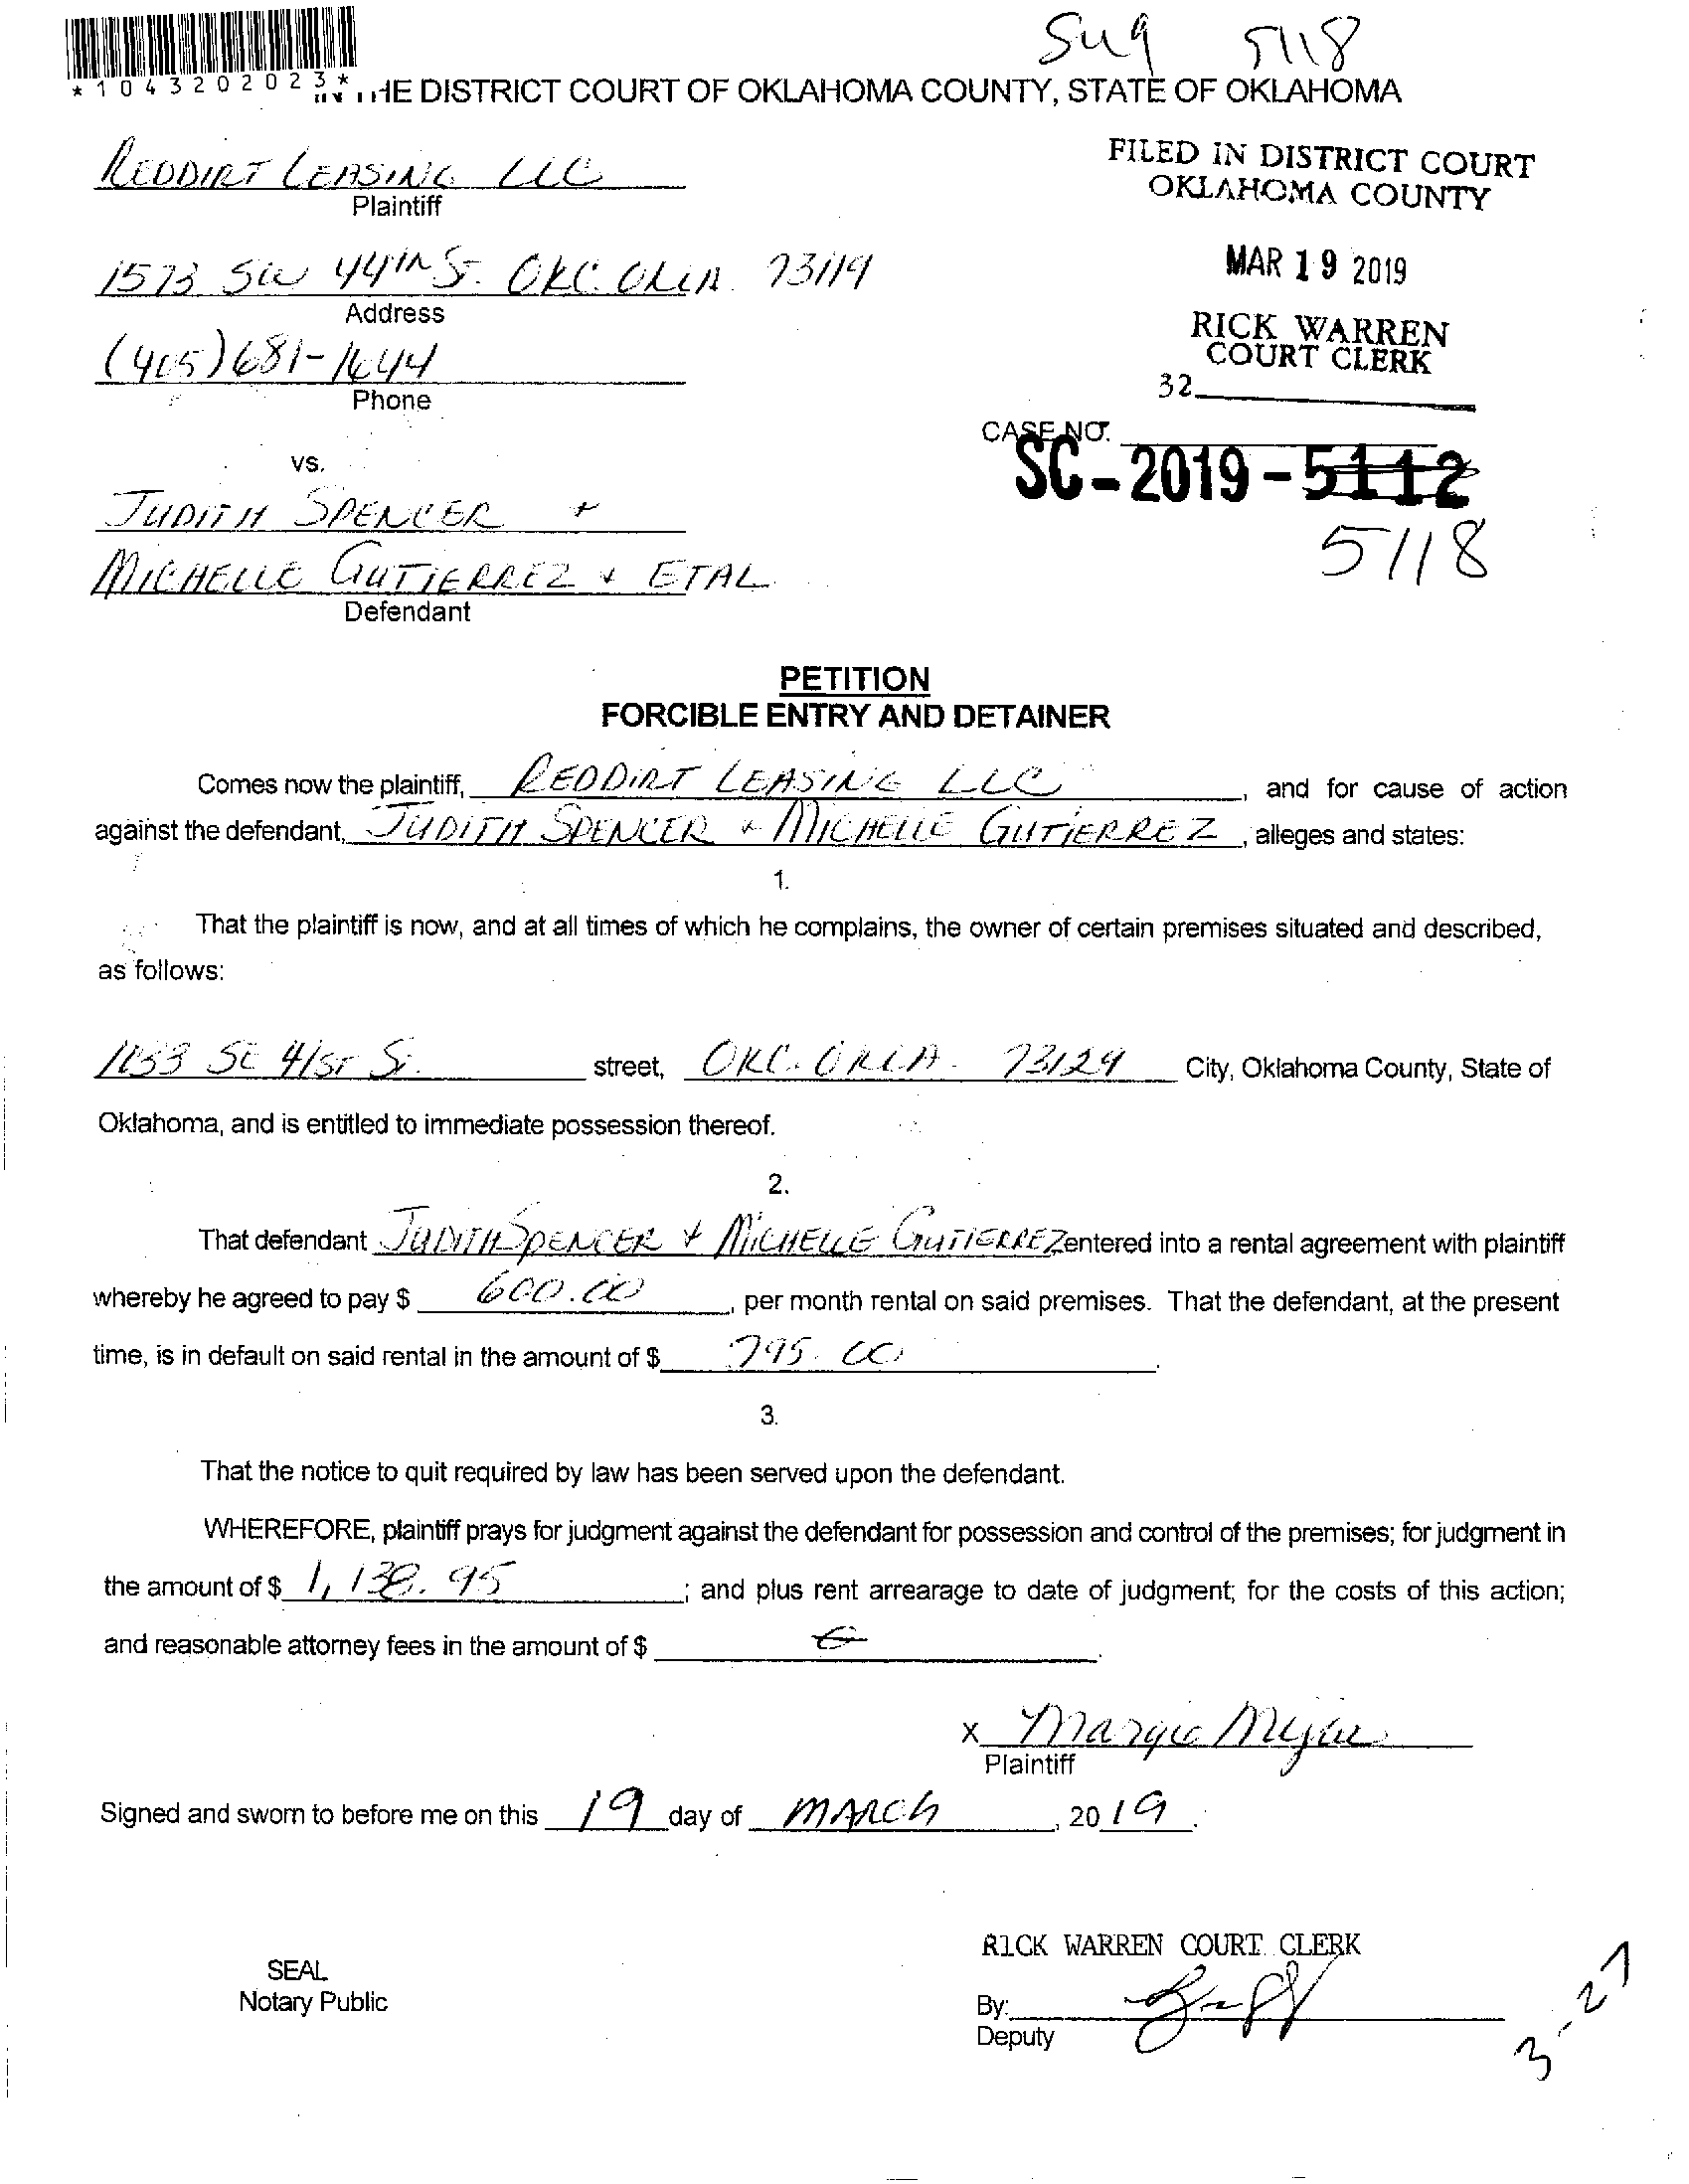 Sug 5118
*1043202023*
HE DISTRICT COURT OF OKLAHOMA COUNTY, STATE OF OKLAHOMA
REDDIRT LEASING LLC
Plaintiff
FILED IN DISTRICT COURT
OKLAHOMA COUNTY
1573 SW 44th St. OKC. OKLA. 73119
Address
MAR 19 2019
(405) 681-1644
Phone
RICK WARREN
COURT CLERK
32
CASE NO.
SC-2019-5112
5118
vs.
JUDITH SPENCER +
MICHELLE GUTIERREZ & ETAL
Defendant
PETITION
FORCIBLE ENTRY AND DETAINER
Comes now the plaintiff, REDDIRT LEASING LLC, and for cause of action
against the defendant, JUDITH SPENCER + MICHELLE GUTIERREZ, alleges and states:
1.
That the plaintiff is now, and at all times of which he complains, the owner of certain premises situated and described,
as follows:
SE 41ST St. street, OKC. OKLA. 73129 City, Oklahoma County, State of
Oklahoma, and is entitled to immediate possession thereof.
2.
That defendant JUDITH SPENCER & MICHELLE GUTIERREZ entered into a rental agreement with plaintiff
whereby he agreed to pay $ 600.00, per month rental on said premises. That the defendant, at the present
time, is in default on said rental in the amount of $ 795.00.
3.
That the notice to quit required by law has been served upon the defendant.
WHEREFORE, plaintiff prays for judgment against the defendant for possession and control of the premises; for judgment in
the amount of $ 1,138.95; and plus rent arrearage to date of judgment; for the costs of this action;
and reasonable attorney fees in the amount of $
x Margie
Plaintiff
Signed and sworn to before me on this 19 day of MARCH, 2019.
RICK WARREN COURT CLERK
SEAL
Notary Public
By:
Deputy
3-27